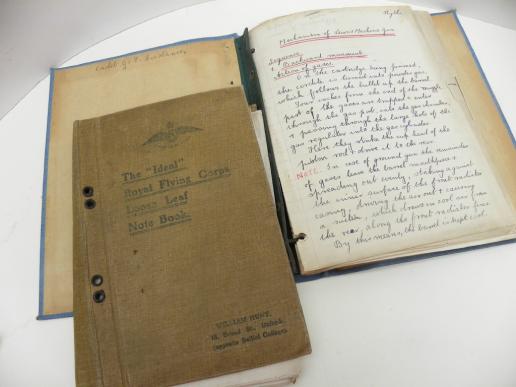 Hythe
Mechanism of Lewis Machine Gun
Sequence
1. Backward movement
Action of gases
On the cartridge being fired,
the cordite is turned into powder gas,
which follows the bullet up the barrel
Four inches from the end of the muzzle
part of the gases are trapped & enter
through the gas port into the gas chamber,
& passing through the large hole of the
gas regulator into the gas cylinder
Here they strike the cup head of the
piston rod & drive it to the rear
NOTE. In case of ground gun the remainder
of gases leave the barrel mouthpiece &
spreading out evenly, striking against
the inner surface of the front radiator
casing, driving the air out & causing
a suction, which draws in cool air from
the rear, along the front radiator fins
By this means, the barrel is kept cool.
Cadet G. F.
The "Ideal"
Royal Flying Corps
Loose Leaf
Note Book.
WILLIAM HUNT,
18, Broad St., Oxford.
(opposite Balliol College)